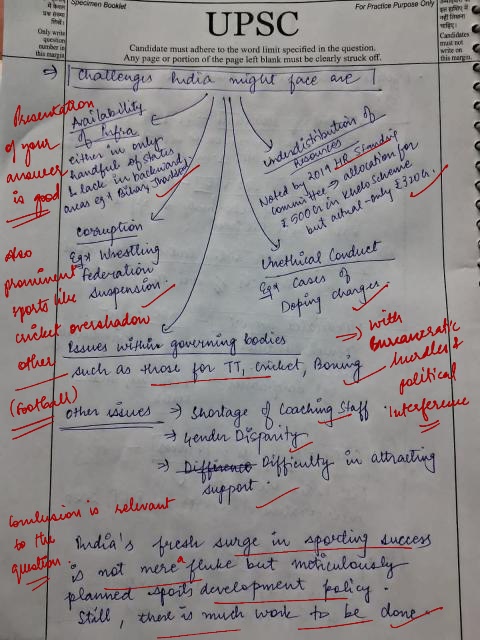 Specimen Booklet
For Practice Purpose Only
UPSC
Candidate must adhere to the word limit specified in the question.
Any page or portion of the page left blank must be clearly struck off.
Only write
question
number in
this margin.
Candidates
must not
write on
this margin.
⇒ Challenges India might face are
Presentation
of your
answer
is good
Availability
of infra
either in only
handful of states
& lack in backward
areas eg* Bihar, Jharkhand
Underdistribution of
Resources
Noted by 2019 HR Standing
committee ⇒ allocation for
₹500 Cr in Khelo Scheme
but actual - only ₹320 Cr.
Corruption
Eg* Wrestling
Federation
suspension.
Unethical Conduct
Eg* Cases of
Doping charges.
Also
prominent
sports like
cricket overshadow
other
(football)
Issues within governing bodies
such as those for TT, Cricket, Boxing
⇒ with
Bureaucratic
hurdles &
political
interference
other issues → Shortage of Coaching Staff
→ Gender Disparity
→ Difference Difficulty in attracting
support.
Conclusion is relevant
to the
question.
India's fresh surge in sporting success
is not mere a fluke but meticulously
planned sports development policy.
Still, there is much work to be done.